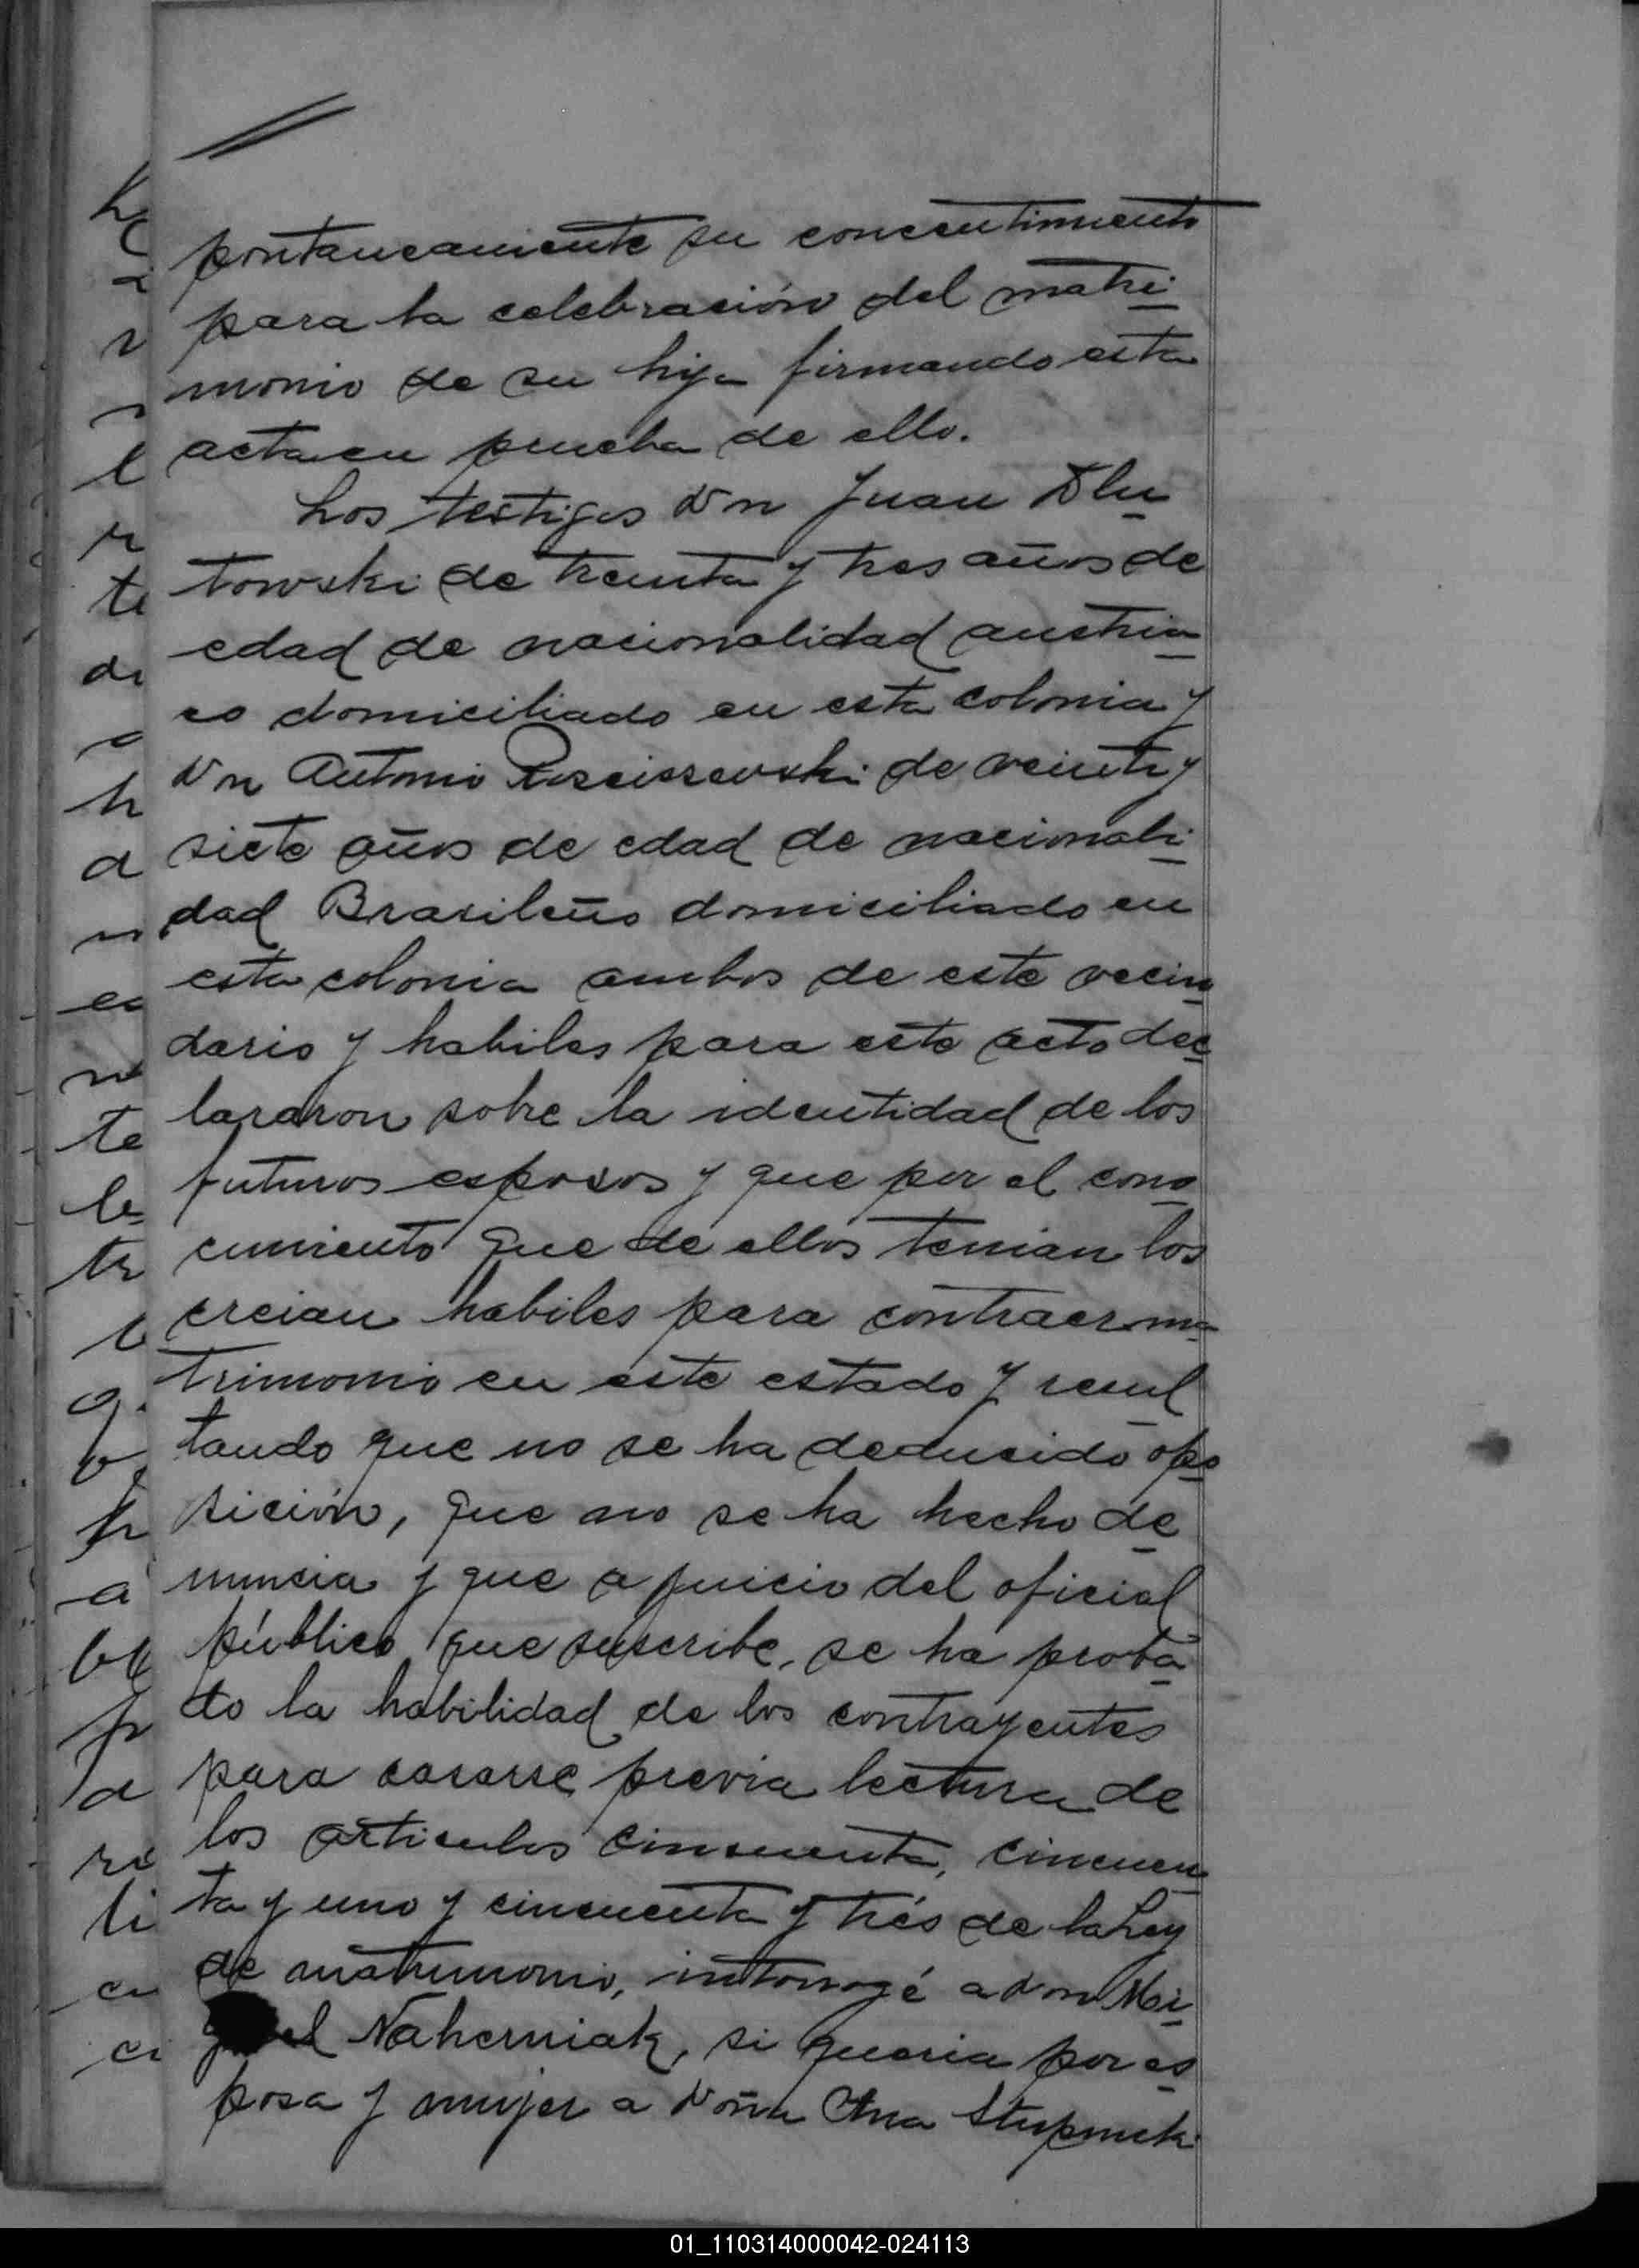 pontaneamente su concentimiento
para la celebración del matri
monio de su hija firmando esta
acta en prueba de ello.
Los testigos Don Juan Dlu
towski de treinta y tres años de
edad de nacionalidad austria
co domiciliado en esta colonia y
Don Antonio de veinte y
siete años de edad de nacionali
dad Brasileño domiciliado en
esta colonia ambos de este vecin
dario y habiles para este acto dec
lararon sobre la identidad de los
futuros esposos y que por el cono
cimiento que de ellos tenian los
creian habiles para contraer ma
trimonio en este estado y resul
tando que no se ha deducido opo
sición, que no se ha hecho de
nuncia y que a juicio del oficial
público que suscribe, se ha proba
do la habilidad de los contrayentes
para casarse previa lectura de
los articulos cincuenta, cincuen
ta y uno y cincuenta y trés de la Ley
de matrimonio, interrogé a Don Mi
guel Naherniak, si queria por es
posa y mujer a Doña Ana
01_110314000042-024113